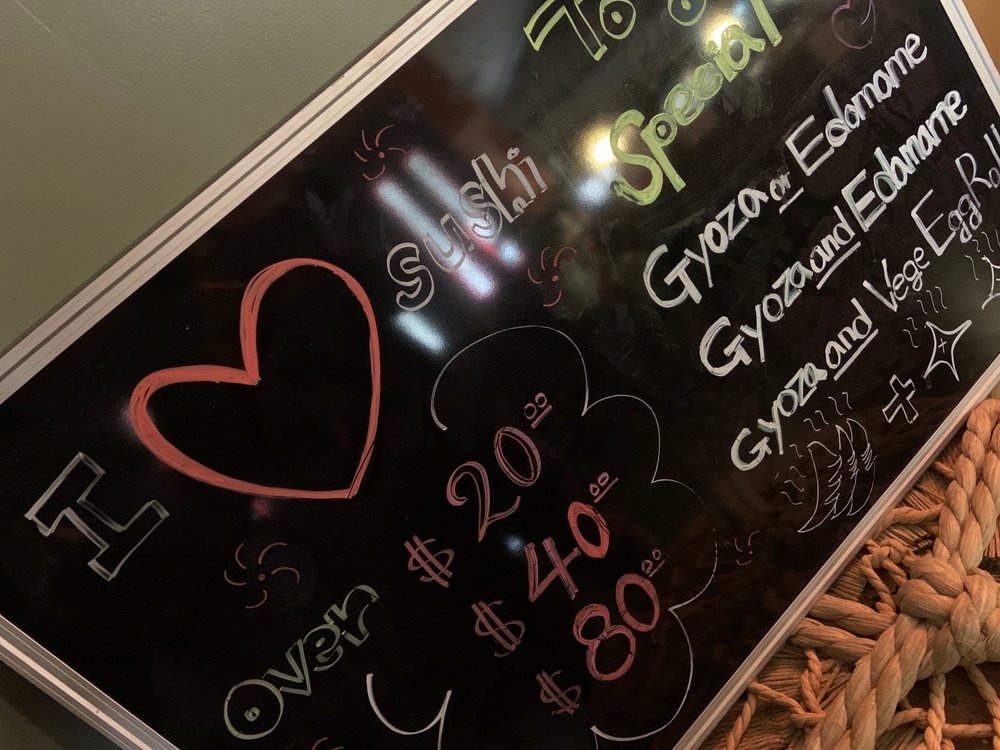 I ♥ sushi
To Go
Special
over
$ 20.00
$ 40.00
$ 80.00
Gyoza or Edamame
Gyoza and Edamame
Gyoza and Vege Egg Roll